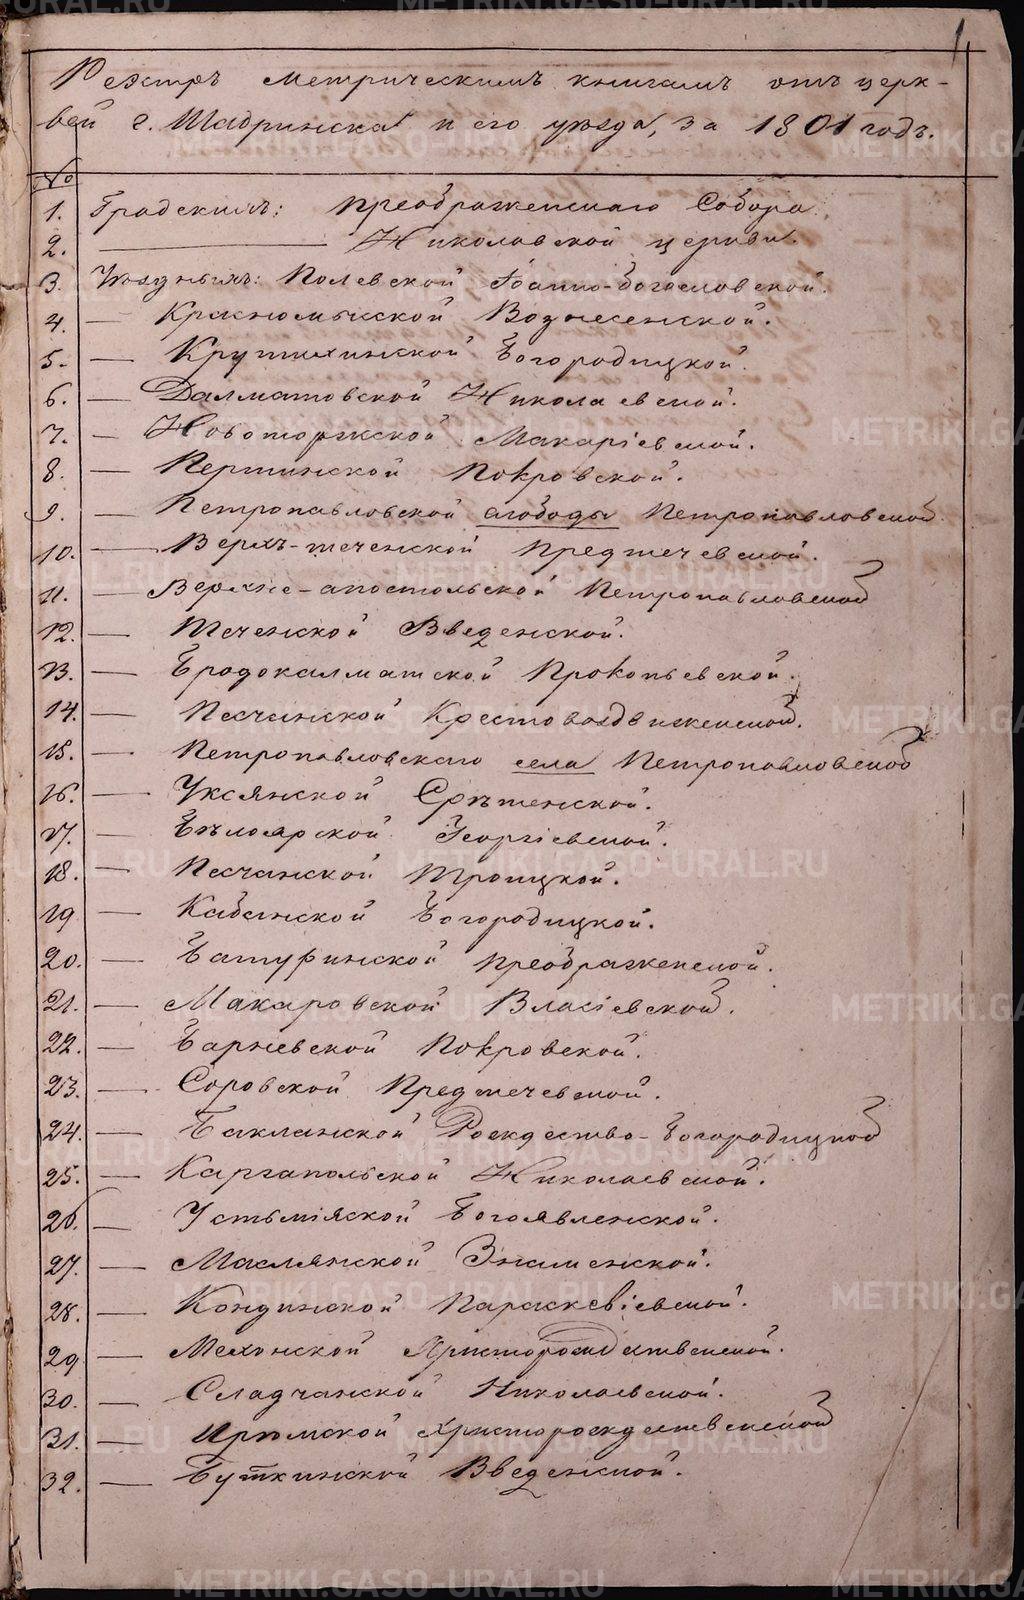 1
Реэстръ метрическимъ книгамъ отъ церк-
вей г. Шадринска и его уѣзда, за 1801 годъ.
№
1. Градскимъ: Преображенскаго Собора.
2. Николаевской церкви.
3. Уѣзднымъ: Полевской Іоанно-Богословской.
4. — Красномысской Вознесенской.
5. — Крутихинской Богородицкой.
6. — Далматовской Николаевской.
7. — Новоторжской Макаріевской.
8. — Першинской Покровской.
9. — Петропавловской слободы Петропавловской
10. — Верхъ-теченской Предтечевской.
11. — Верхне-апостольской Петропавловской
12. — Теченской Введенской.
13. — Бродокалматской Прокопьевской.
14. — Песчанской Крестовоздвиженской.
15. — Петропавловскаго села Петропавловской
16. — Уксянской Срѣтенской.
17. — Бѣлоярской Георгіевской.
18. — Песчанской Троицкой.
19. — Кабанской Богородицкой.
20. — Батуринской Преображенской.
21. — Макаровской Власіевской.
22. — Барневской Покровской.
23. — Соровской Предтечевской.
24. — Бакланской Рождество-Богородицкой
25. — Каргапольской Николаевской.
26. — Устьміяской Богоявленской.
27. — Маслянской Знаменской.
28. — Кондинской Параскевіевской.
29. — Мехонской Христорождественской.
30. — Сладчанской Николаевской.
31. — Ирюмской Христорождественской
32. — Буткинской Введенской.
METRIKI.GASO-URAL.RU